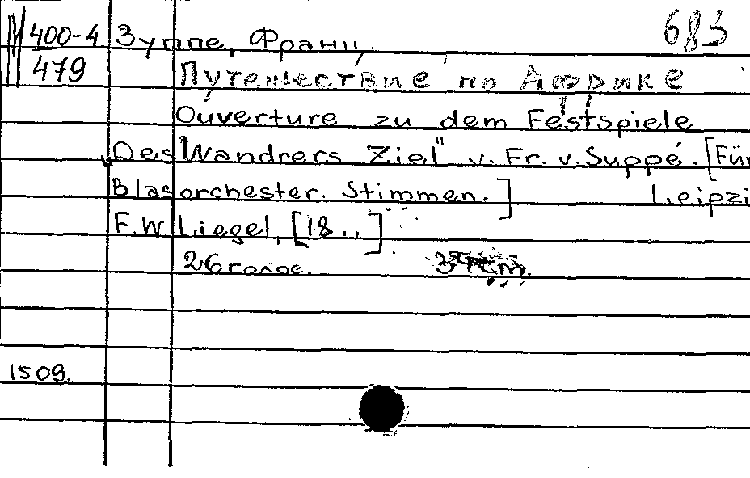 М 400-4 Зуппе, Франц 683
479 Путешествие по Африке
Ouverture zu dem Festspiele
"Des Wandrers Ziel" v. Fr. v. Suppé. [Für
Blasorchester. Stimmen.] Leipzi
F.W. Liegel, [18..]
26 голос.
1509.